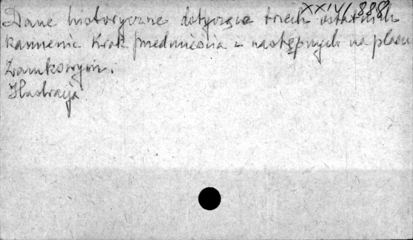 XXIV/888
Dane historyczne dotyczące trzech ostatnich
kamienic Krak. Przedmieścia i następnych na placu
Zamkowym.
Ilustracja